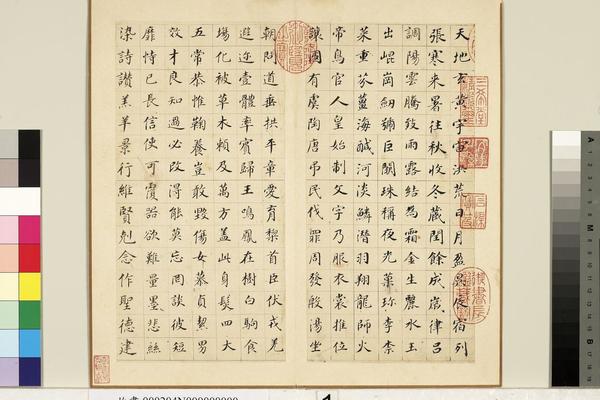 天地玄黃宇宙洪荒日月盈昃辰宿列
張寒來暑往秋收冬藏閏餘成歲律呂
調陽雲騰致雨露結為霜金生麗水玉
出崐崗劒號巨闕珠稱夜光菓珍李柰
菜重芥薑海鹹河淡鱗潛羽翔龍師火
帝鳥官人皇始制文字乃服衣裳推位
讓國有虞陶唐弔民伐罪周發殷湯坐
朝問道垂拱平章愛育黎首臣伏戎羌
遐迩壹體率賓歸王鳴鳳在樹白駒食
場化被草木賴及萬方蓋此身髮四大
五常恭惟鞠養豈敢毀傷女慕貞絜男
效才良知過必改得能莫忘罔談彼短
靡恃己長信使可覆器欲難量墨悲絲
染詩讚羔羊景行維賢剋念作聖德建